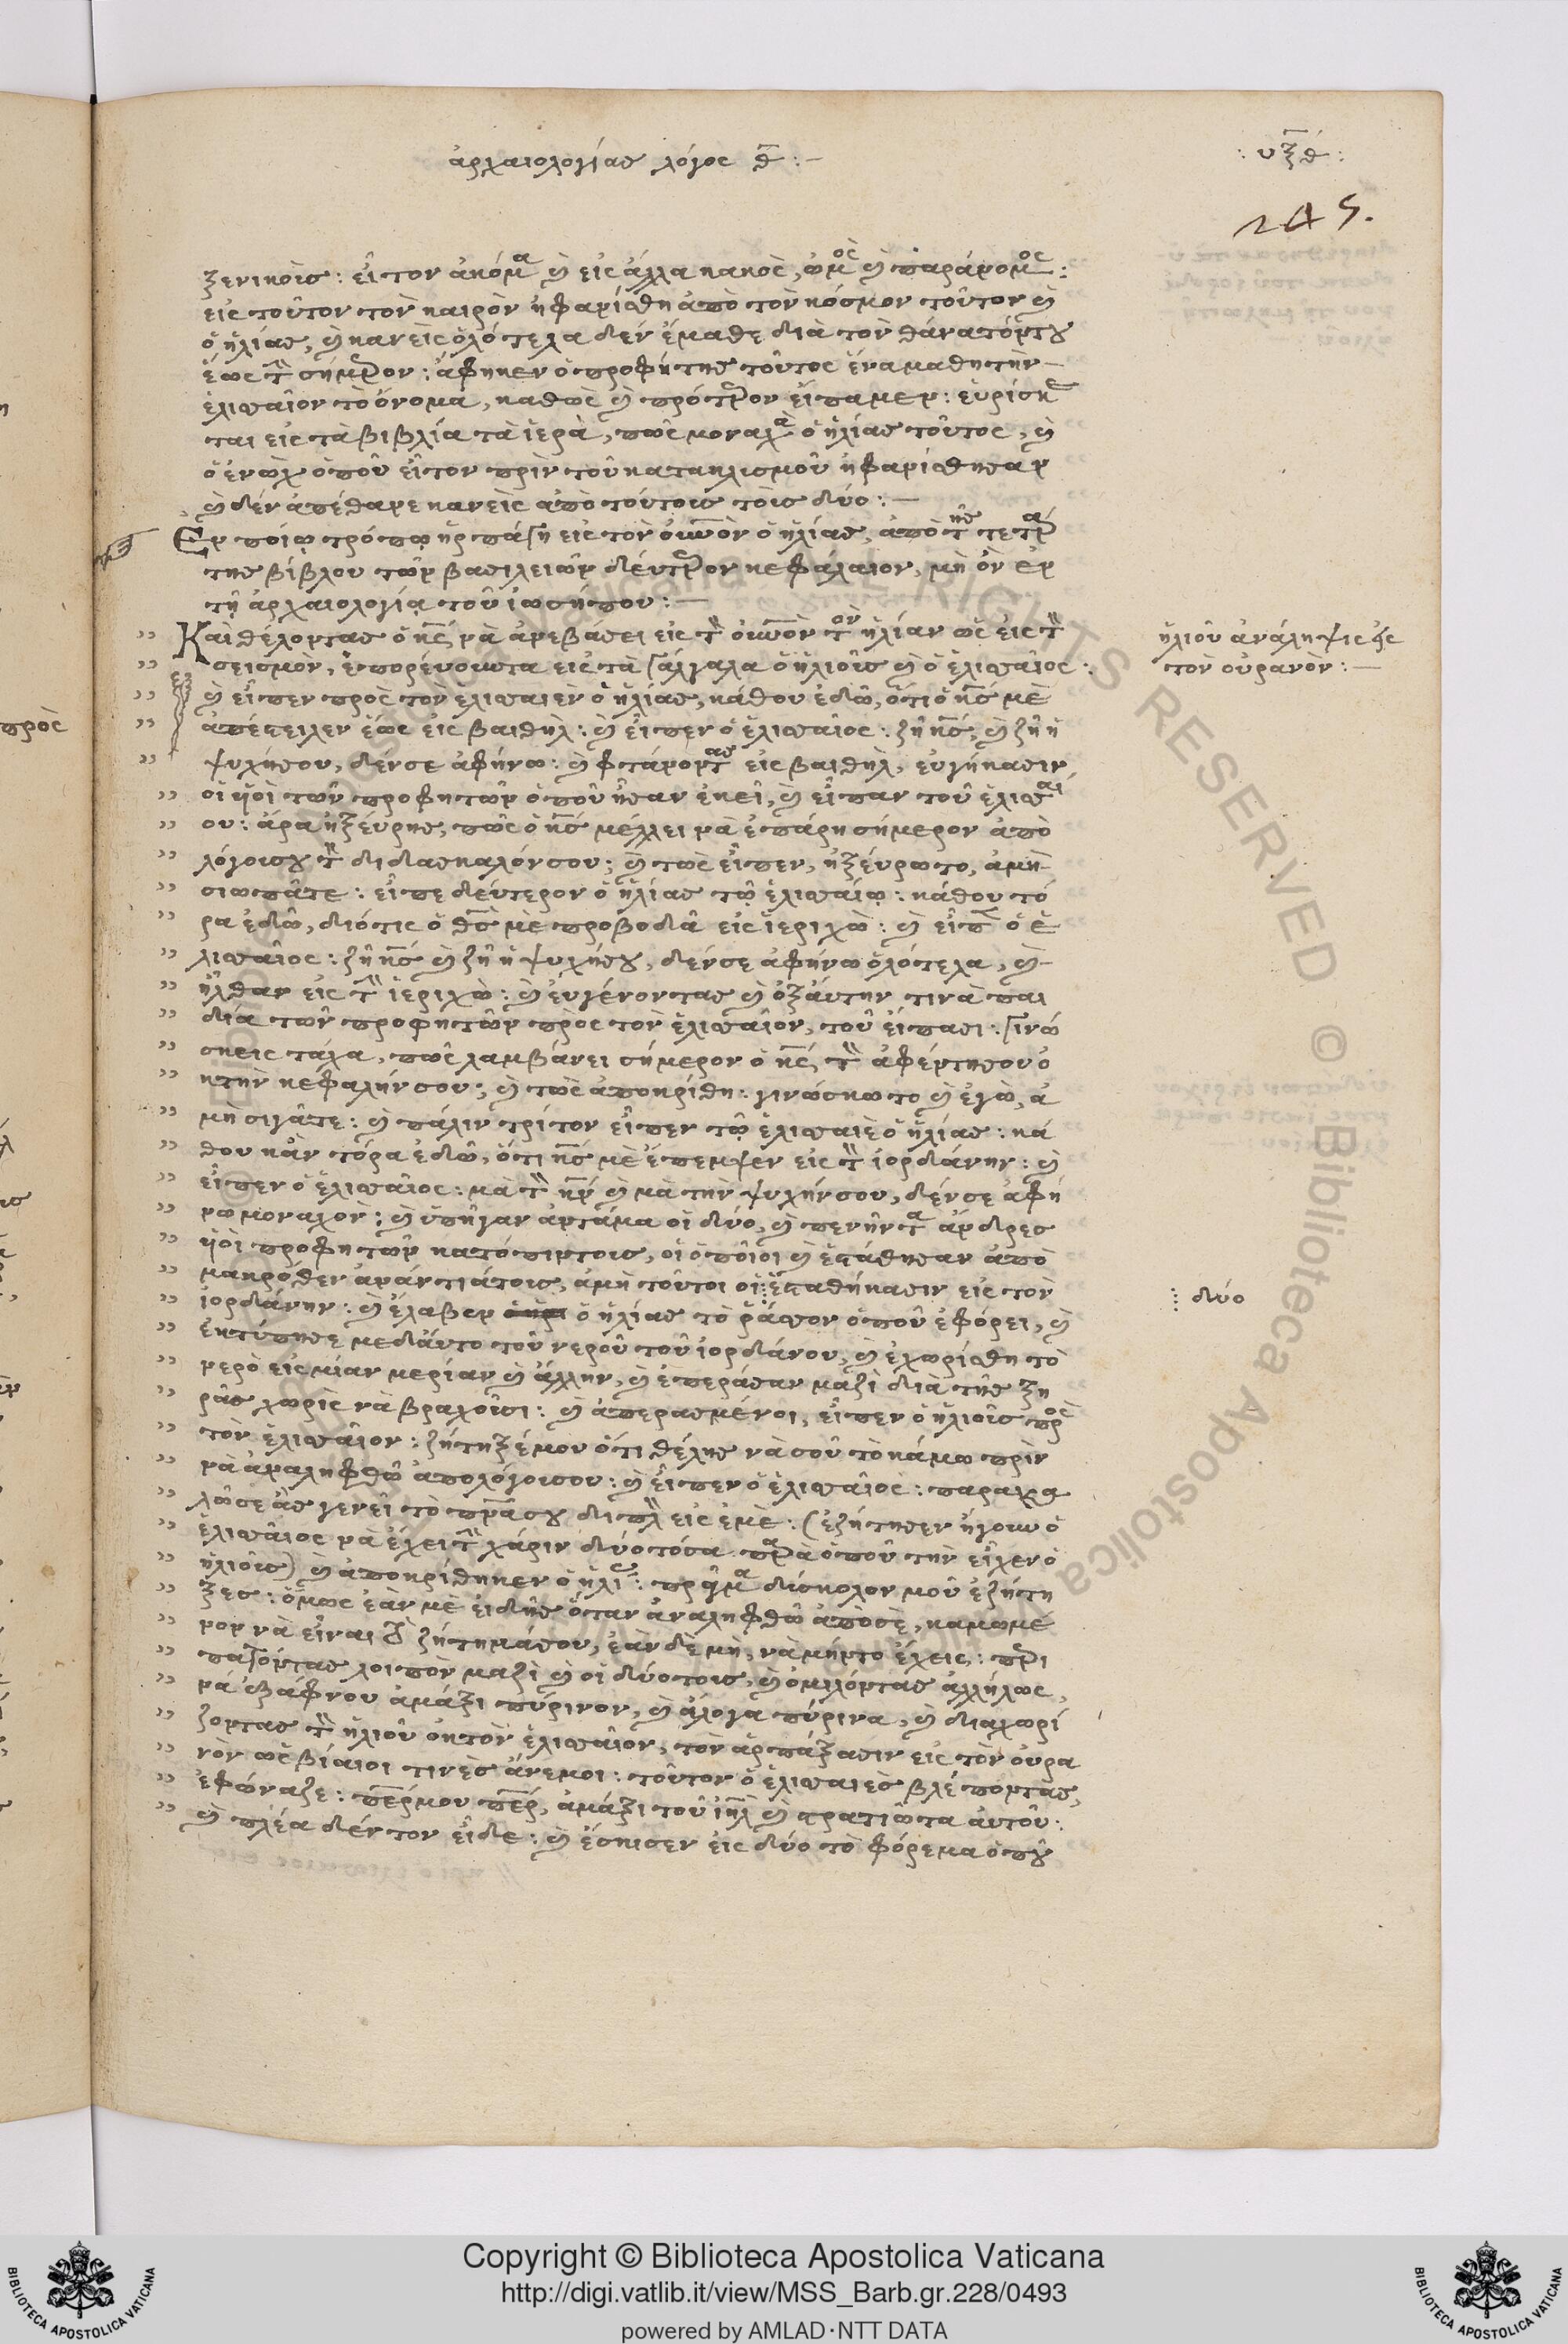 ἀρχαιολογίας λόγος θ̅ :—
: υξθ :
245.
ξενικοῖς : εἶτον ἀκόμα καὶ εἰς ἄλλα κακὸς, ὠμὸς καὶ παράνομος :
εἰς τοῦτον τὸν καιρὸν ἠφανίσθη ἀπὸ τὸν κόσμον τοῦτον καὶ
ὁ ἠλίας, καὶ κανεὶς ὁλότελα δὲν ἔμαθε διὰ τὸν θάνατόν του
ἕως τὴν σήμερον : ἀφῆκεν ὁ προφήτης τοῦτος ἕνα μαθητὴν
ἐλισαῖον τὸ ὄνομα, καθὼς καὶ πρότερον εἴπαμεν : εὑρίσκε
ται εἰς τὰ βιβλία τὰ ἱερὰ, πῶς μοναχὰ ὁ ἠλίας τοῦτος, καὶ
ὁ ἐνὼχ ὁποῦ εἶτον πρὶν τοῦ κατακλισμοῦ ἠφανίσθησαν
καὶ δὲν ἀπέθανε κανεὶς ἀπὸ τούτοις τοῖς δύο :—
Ἐν ποίῳ τρόπῳ ἡρπάγη εἰς τὸν οὐνον ὁ ἠλίας, ἀπὸ τῆς τετάρ
της βίβλου τῶν βασιλειῶν δεύτερον κεφάλαιον, μὴ ὂν ἐν
τῇ ἀρχαιολογίᾳ τοῦ ἰωσήπου :—
Καὶ θέλοντας ὁ κς νὰ ἀνεβάσει εἰς τὸν οὐνον τὸν ἠλίαν ὡς εἰς τὸν
σεισμὸν, ἐπορεύουντα εἰς τὰ γάλγαλα ὁ ἠλιοῦς καὶ ὁ ἐλισαῖος :
καὶ εἶπεν πρὸς τὸν ἐλισαιὲν ὁ ἠλίας, κάθου ἐδῶ, ὅτι ὁ κς μὲ
ἀπέστειλεν ἕως εἰς βαιθήλ : καὶ εἶπεν ὁ ἐλισαῖος : ζῆ κς, καὶ ζῆ ἡ
ψυχήσου, δένσε ἀφήνω : καὶ φτάνοντας εἰς βαιθὴλ, εὐγήκασιν
οἱ υἱοὶ τῶν προφητῶν ὁποῦ ἦσαν ἐκεῖ, καὶ εἶπαν τοῦ ἐλισαί
ου : ἆρα ἠξεύρης, πῶς ὁ κς μέλλει νὰ ἐπάρη σήμερον ἀπὸ
λόγοισου τὸν διδασκαλόνσου; καὶ τῶς εἶπεν, ἠξεύρωτο, ἀμὴ
σιωπᾶτε : εἶπε δεύτερον ὁ ἠλίας τῷ ἐλισαίῳ : κάθου τό
ρα ἐδῶ, διότις ὁ θς μὲ προβοδᾶ εἰς ἱεριχὼ : καὶ εἶπεν ὁ ἐ
λισαῖος : ζῆ κς καὶ ζῆ ἡ ψυχήσου, δένσε ἀφήνω ὁλότελα, καὶ
ἦλθαν εἰς τὴν ἱεριχὼ : καὶ εὐγένοντας καὶ ὀξ αὐτην τινὰ παι
δία τῶν προφητῶν πρὸς τὸν ἐλισαῖον, τοῦ εἴπασι : γινώ
σκεις τάχα, πῶς λαμβάνει σήμερον ὁ κς, τὸν ἀφέντησου ὀ
κτὴν κεφαλήνσου; καὶ τῶς ἀποκρίθη : γινώσκωτο καὶ ἐγὼ, ἀ
μὴ σιγᾶτε : καὶ πάλιν τρίτον εἶπεν τῷ ἐλισαιὲ ὁ ἠλίας : κά
θου κἂν τόρα ἐδῶ, ὅτι κς μὲ ἔπεμψεν εἰς τὸν ἰορδάνην : καὶ
εἶπεν ὁ ἐλισαῖος : μὰ τὸν κν καὶ μὰ τὴν ψυχήνσου, δένσε ἀφή
νω μοναχὸν : καὶ ὑπῆγαν ἀντάμα οἱ δύο, καὶ πενῆντα ἄνδρες
υἱοὶ προφητῶν κατόπιντοις, οἱ ὁποῖοι καὶ ἐστάθησαν ἀπὸ
μακρόθεν ἀνάντιάτοις, ἀμὴ τοῦτοι οἱ ἐσταθήκασιν εἰς τὸν
ἰορδάνην : καὶ ἔλαβεν ὁ ἠλίας τὸ ῥάσον ὁποῦ ἐφόρει, καὶ
ἐκτύπησε μεδάυτο τοῦ νεροῦ τοῦ ἰορδάνου, καὶ ἐχωρίσθη τὸ
νερὸ εἰς μίαν μερίαν καὶ ἄλλην, καὶ ἐπεράσαν μαζὶ διὰ τῆς ξη
ρᾶς χωρὶς νὰ βραχοῦσι : καὶ ἀπερασμένοι, εἶπεν ὁ ἠλιοῦς πρὸς
τὸν ἐλισαῖον : ζήτηξέμου ὅτι θέλης νὰ σοῦ τὸ κάμω πρὶν
νὰ ἀναληφθῶ ἀπολόγοισου : καὶ εἶπεν ὁ ἐλισαῖος : παρακα
λῶσε ἂς γενεῖ τὸ πνασου διπλὸ εἰς ἐμὲ : (ἐζήτησεν ἤγουν ὁ
ἐλισαῖος νὰ ἔχει τὴν χάριν δύο τόσα παρὰ ὁποῦ τὴν εἶχεν ὁ
ἠλιοῦς) καὶ ἀποκρίθηκεν ὁ ἠλίας : πρᾶγμα δύσκολον μοῦ ἐζήτη
ξες : ὅμως ἐὰν μὲ εἰδῆς ὅταν ἀναληφθῶ ἀπὸσὲ, καμωμέ
νον νὰ εἶναι τὸ ζήτημάσου, ἐὰν δὲ μὴ, νὰ μήντο ἔχεις : περι
πατόντας λοιπὸν μαζὶ καὶ οἱ δύοτοις, καὶ ὁμιλόντας ἀλλήλως,
νά ἐξάφνου ἁμάξι πύρινον, καὶ ἄλογα πύρινα, καὶ διαχωρί
ζοντας τὸν ἠλιοῦ ὀκτὸν ἐλισαῖον, τὸν ἁρπάξασιν εἰς τὸν οὐρα
νὸν ὡς βίαιοι τινὲς ἄνεμοι : τοῦτον ὁ ἐλισαιὲς βλέποντας,
ἐφώναζε : περμου περ, ἁμάξι τοῦ ἰηλ καὶ στρατιῶτα ἀυτοῦ :
καὶ πλέα δέν τον εἶδε : καὶ ἔσκισεν εἰς δύο τὸ φόρεμα ὁποῦ
ἠλιοῦ ἀνάληψις εἰς
τὸν οὐρανὸν :—
⁝ δύο
πρὸς
Copyright © Biblioteca Apostolica Vaticana
http://digi.vatlib.it/view/MSS_Barb.gr.228/0493
powered by AMLAD·NTT DATA